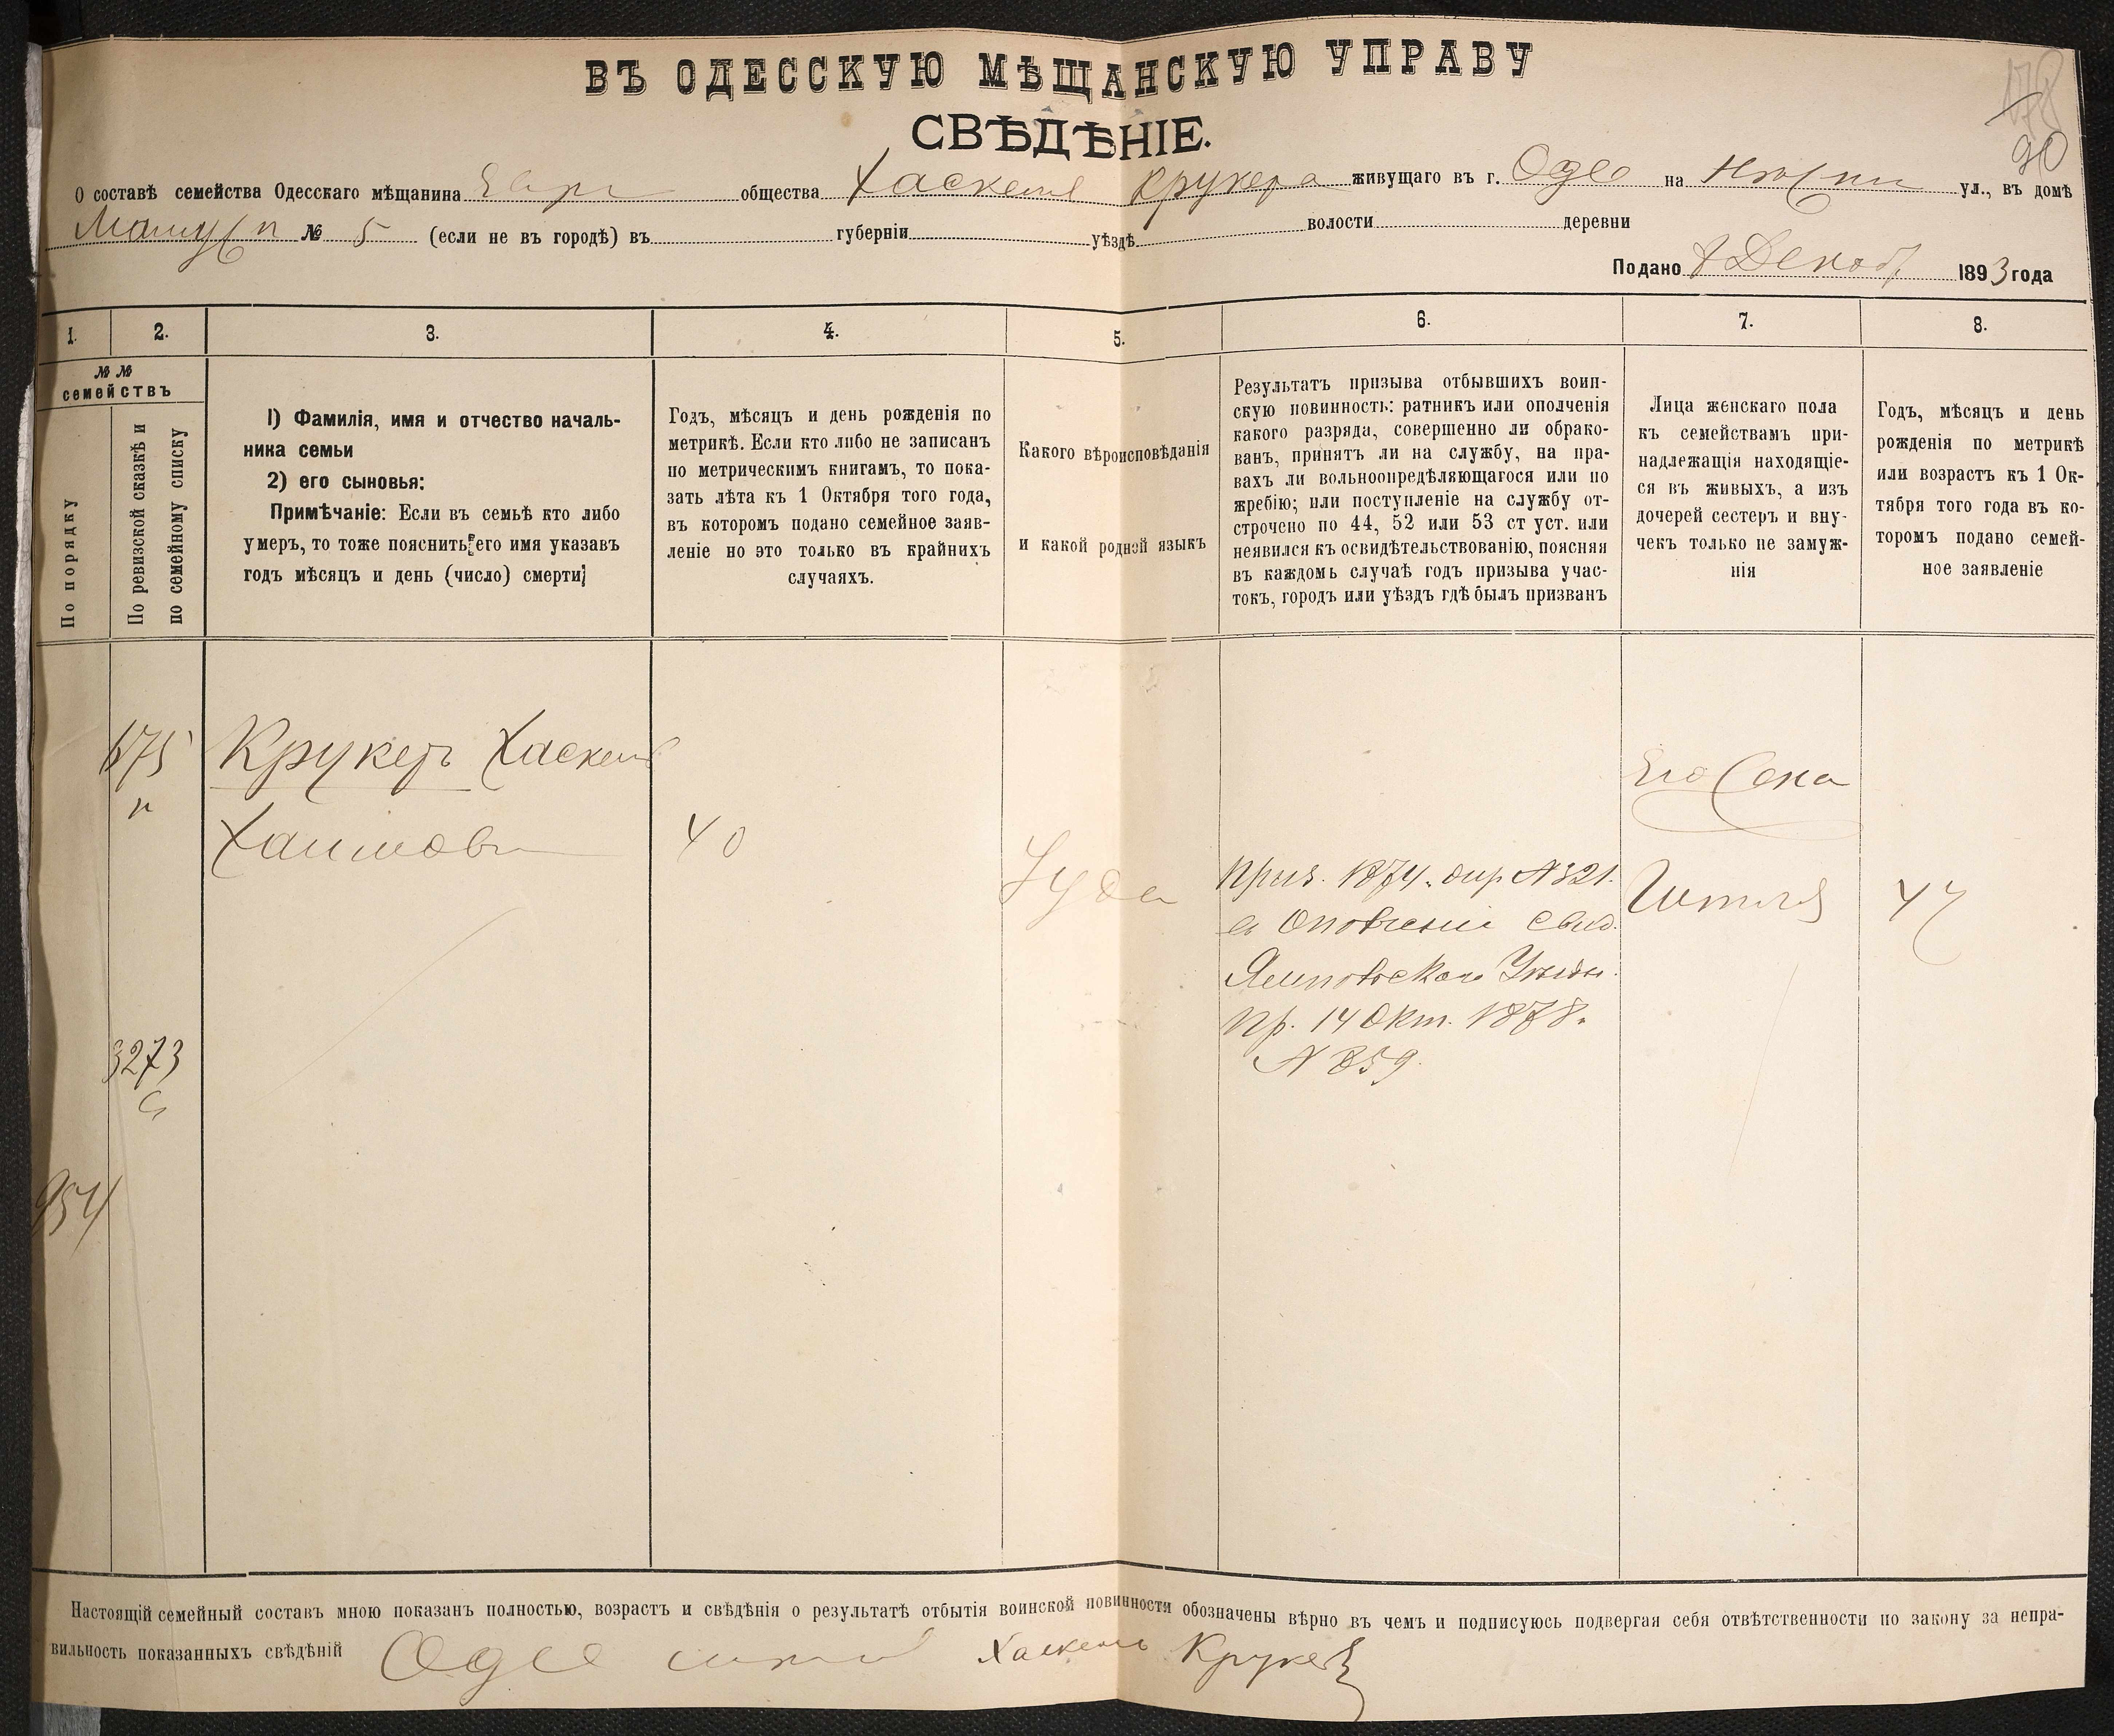 ВЪ ОДЕССКУЮ МѢЩАНСКУЮ УПРАВУ
СВѢДѢНІЕ.
90
О составѣ семейства Одесскаго мѣщанина общества Хаскеля Крукера живущаго въ г. Одес на ул., въ домѣ
№ 5 (если не въ городѣ) въ губерніи уѣздѣ волости деревни
Подано 8 Декаб. 1893 года
1. 2. 3. 4. 5. 6. 7. 8.
№ №
семействъ
По порядку
По ревизской сказкѣ и
по семейному списку
1) Фамилія, имя и отчество началь-
ника семьи
2) его сыновья:
Примѣчаніе: Если въ семьѣ кто либо
умеръ, то тоже пояснить его имя указавъ
годъ мѣсяцъ и день (число) смерти
Годъ, мѣсяцъ и день рожденія по
метрикѣ. Если кто либо не записанъ
по метрическимъ книгамъ, то пока-
зать лѣта къ 1 Октября того года,
въ которомъ подано семейное заяв-
леніе но это только въ крайнихъ
случаяхъ.
Какого вѣроисповѣданія
и какой родной языкъ
Результатъ призыва отбывшихъ воин-
скую повинность: ратникъ или ополченія
какого разряда, совершенно ли обрако-
ванъ, принятъ ли на службу, на пра-
вахъ ли вольноопредѣляющагося или по
жребію; или поступленіе на службу от-
строчено по 44, 52 или 53 ст уст. или
неявился къ освидѣтельствованію, поясняя
въ каждомъ случаѣ годъ призыва учас-
токъ, городъ или уѣздъ гдѣ былъ призванъ
Лица женскаго пола
къ семействамъ при-
надлежащія находящіе-
ся въ живыхъ, а изъ
дочерей сестеръ и вну-
чекъ только не замуж-
нія
Годъ, мѣсяцъ и день
рожденія по метрикѣ
или возрастъ къ 1 Ок-
тября того года въ ко-
торомъ подано семей-
ное заявленіе
675
п
Крукеръ Хаскель
Хаимов
40
Іуде
Приз. 1874. №321.
въ Ополченіе свид.
Ямпольскаго Уѣзdn.
Пр. 14 Окт. 1878.
№ 859.
Его Жена
47
3273
с
954
Настоящій семейный составъ мною показанъ полностью, возрастъ и свѣдѣнія о результатѣ отбытія воинской повинности обозначены вѣрно въ чемъ и подписуюсь подвергая себя отвѣтственности по закону за непра-
вильность показанныхъ свѣдѣній Хаскель Крукеръ